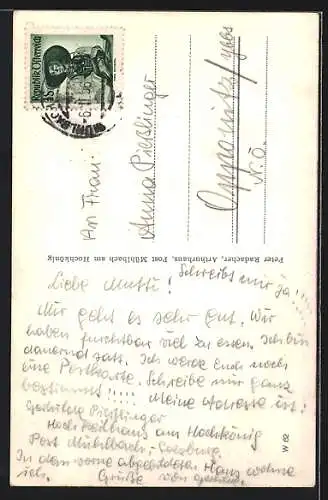 Republik Österreich
MÜHLBACH
An Frau
Anna Pießlinger
Opponitz/Ybbs
N.Ö.
Peter Radacher, Arthurhaus, Post Mühlbach am Hochkönig
Liebe Mutti! Schreibt mir ja!
Mir geht es sehr gut. Wir
haben furchtbar viel zu essen. Ich bin
dauernd satt. Ich werde Euch noch
eine Postkarte. Schreibe mir ganz
bestimmt!!!!! Meine Adresse ist:
Pießlinger
Hochkönig
Post Mühlbach, Salzburg.
In dem vorne abgebildeten Haus wohne
ich. Grüße von
W 62